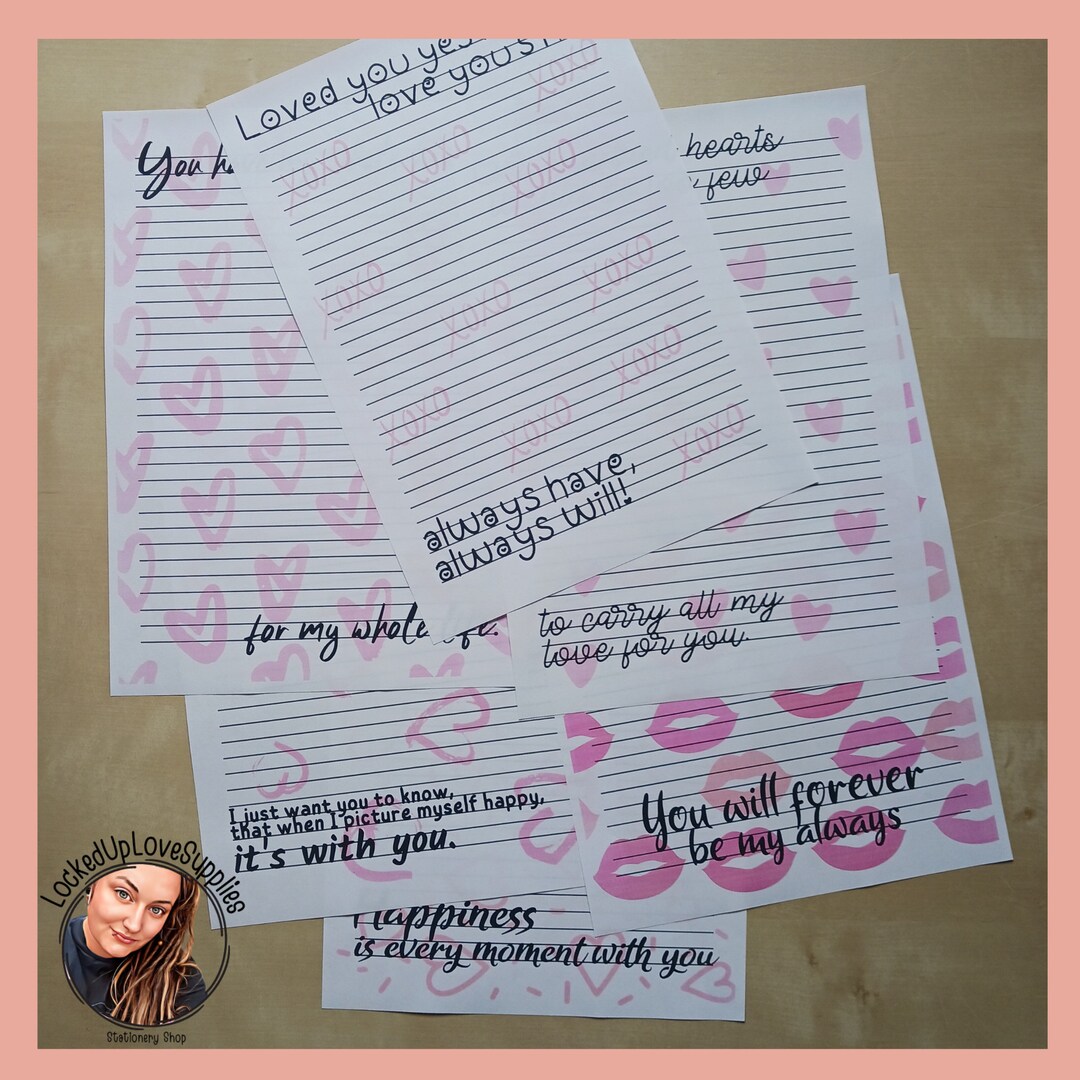 Loved you
love you
XOXO
XOXO
XOXO
XOXO
XOXO
XOXO
XOXO
XOXO
XOXO
XOXO
XOXO
always have,
always will!
You
for my whole
hearts
few
to carry all my
love for you.
I just want you to know,
that when I picture myself happy,
it's with you.
You will forever
be my always
Happiness
is every moment with you
LockedUpLoveSupplies
Stationery Shop